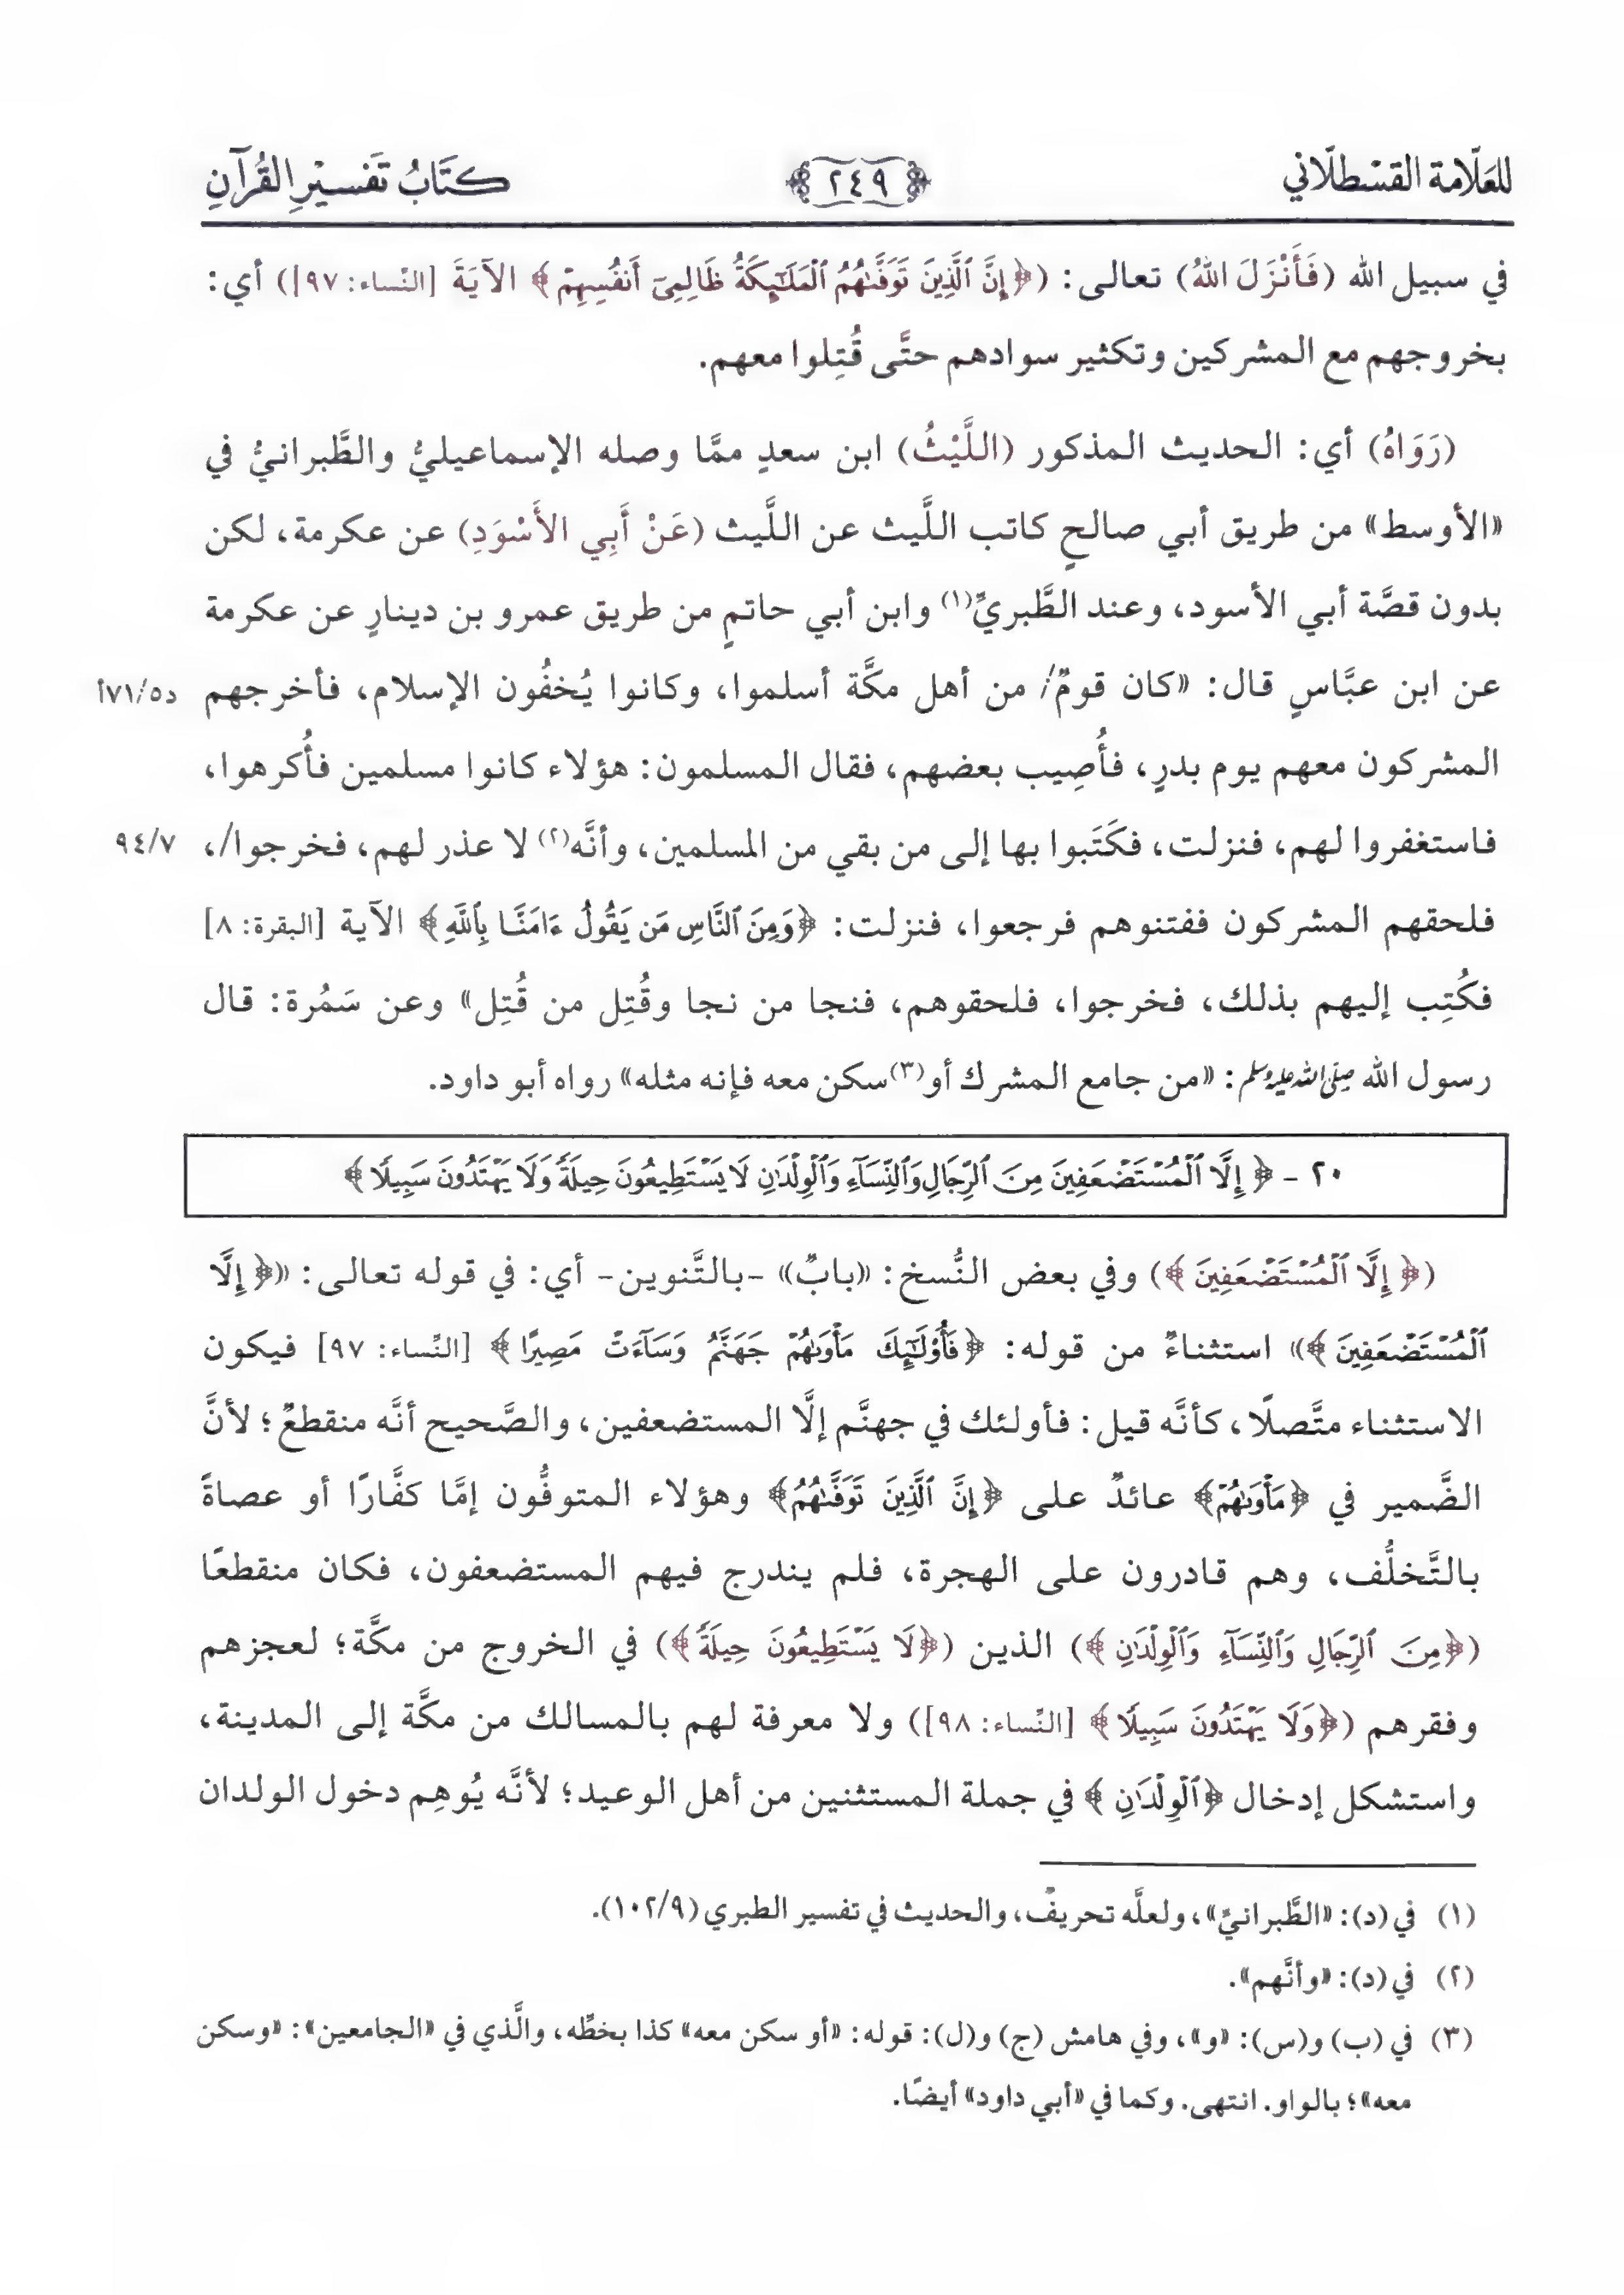 للعَلّامة القسْطلّاني ٢٤٩ كتَابُ تَفسيْرِ القُرآنِ
في سبيل الله (فَأَنْزَلَ اللهُ) تعالى: (﴿إِنَّ ٱلَّذِينَ تَوَفَّىٰهُمُ ٱلْمَلَٰٓئِكَةُ ظَالِمِىٓ أَنفُسِهِمْ﴾ الآيَةَ [النِّساء: ٩٧]) أي:
بخروجهم مع المشركين وتكثير سوادهم حتَّى قُتِلوا معهم.
(رَوَاهُ) أي: الحديث المذكور (اللَّيْثُ) ابن سعدٍ ممَّا وصله الإسماعيليُّ والطَّبرانيُّ في
«الأوسط» من طريق أبي صالحٍ كاتب اللَّيث عن اللَّيث (عَنْ أَبِي الأَسْوَدِ) عن عكرمة، لكن
بدون قصَّة أبي الأسود، وعند الطَّبريِّ(١) وابن أبي حاتمٍ من طريق عمرو بن دينارٍ عن عكرمة
عن ابن عبَّاسٍ قال: «كان قومٌ/ من أهل مكَّة أسلموا، وكانوا يُخفُون الإسلام، فأخرجهم د٧١/٥أ
المشركون معهم يوم بدرٍ، فأُصِيب بعضهم، فقال المسلمون: هؤلاء كانوا مسلمين فأُكرهوا،
فاستغفروا لهم، فنزلت، فكَتَبوا بها إلى من بقي من المسلمين، وأنَّه(٢) لا عذر لهم، فخرجوا/، ٩٤/٧
فلحقهم المشركون ففتنوهم فرجعوا، فنزلت: ﴿وَمِنَ ٱلنَّاسِ مَن يَقُولُ ءَامَنَّا بِٱللَّهِ﴾ الآية [البقرة: ٨]
فكُتِب إليهم بذلك، فخرجوا، فلحقوهم، فنجا من نجا وقُتِل من قُتِل» وعن سَمُرة: قال
رسول الله صلى الله عليه وسلم: «من جامع المشرك أو(٣) سكن معه فإنه مثله» رواه أبو داود.
٢٠ - ﴿إِلَّا ٱلْمُسْتَضْعَفِينَ مِنَ ٱلرِّجَالِ وَٱلنِّسَآءِ وَٱلْوِلْدَٰنِ لَا يَسْتَطِيعُونَ حِيلَةً وَلَا يَهْتَدُونَ سَبِيلًا﴾
(﴿إِلَّا ٱلْمُسْتَضْعَفِينَ﴾) وفي بعض النُّسخ: «بابٌ» -بالتَّنوين- أي: في قوله تعالى: «﴿إِلَّا
ٱلْمُسْتَضْعَفِينَ﴾» استثناءٌ من قوله: ﴿فَأُو۟لَٰٓئِكَ مَأْوَىٰهُمْ جَهَنَّمُ وَسَآءَتْ مَصِيرًا﴾ [النِّساء: ٩٧] فيكون
الاستثناء متَّصلًا، كأنَّه قيل: فأولئك في جهنَّم إلَّا المستضعفين، والصَّحيح أنَّه منقطعٌ؛ لأنَّ
الضَّمير في ﴿مَأْوَىٰهُمْ﴾ عائدٌ على ﴿إِنَّ ٱلَّذِينَ تَوَفَّىٰهُمُ﴾ وهؤلاء المتوفُّون إمَّا كفَّارًا أو عصاةً
بالتَّخلُّف، وهم قادرون على الهجرة، فلم يندرج فيهم المستضعفون، فكان منقطعًا
(﴿مِنَ ٱلرِّجَالِ وَٱلنِّسَآءِ وَٱلْوِلْدَٰنِ﴾) الذين (﴿لَا يَسْتَطِيعُونَ حِيلَةً﴾) في الخروج من مكَّة؛ لعجزهم
وفقرهم (﴿وَلَا يَهْتَدُونَ سَبِيلًا﴾ [النِّساء: ٩٨]) ولا معرفة لهم بالمسالك من مكَّة إلى المدينة،
واستشكل إدخال ﴿ٱلْوِلْدَٰنِ﴾ في جملة المستثنين من أهل الوعيد؛ لأنَّه يُوهِم دخول الولدان
(١) في (د): «الطَّبرانيِّ»، ولعلَّه تحريفٌ، والحديث في تفسير الطبري (١٠٢/٩).
(٢) في (د): «وأنَّهم».
(٣) في (ب) و(س): «و»، وفي هامش (ج) و(ل): قوله: «أو سكن معه» كذا بخطِّه، والَّذي في «الجامعين»: «وسكن
معه»؛ بالواو. انتهى. وكما في «أبي داود» أيضًا.